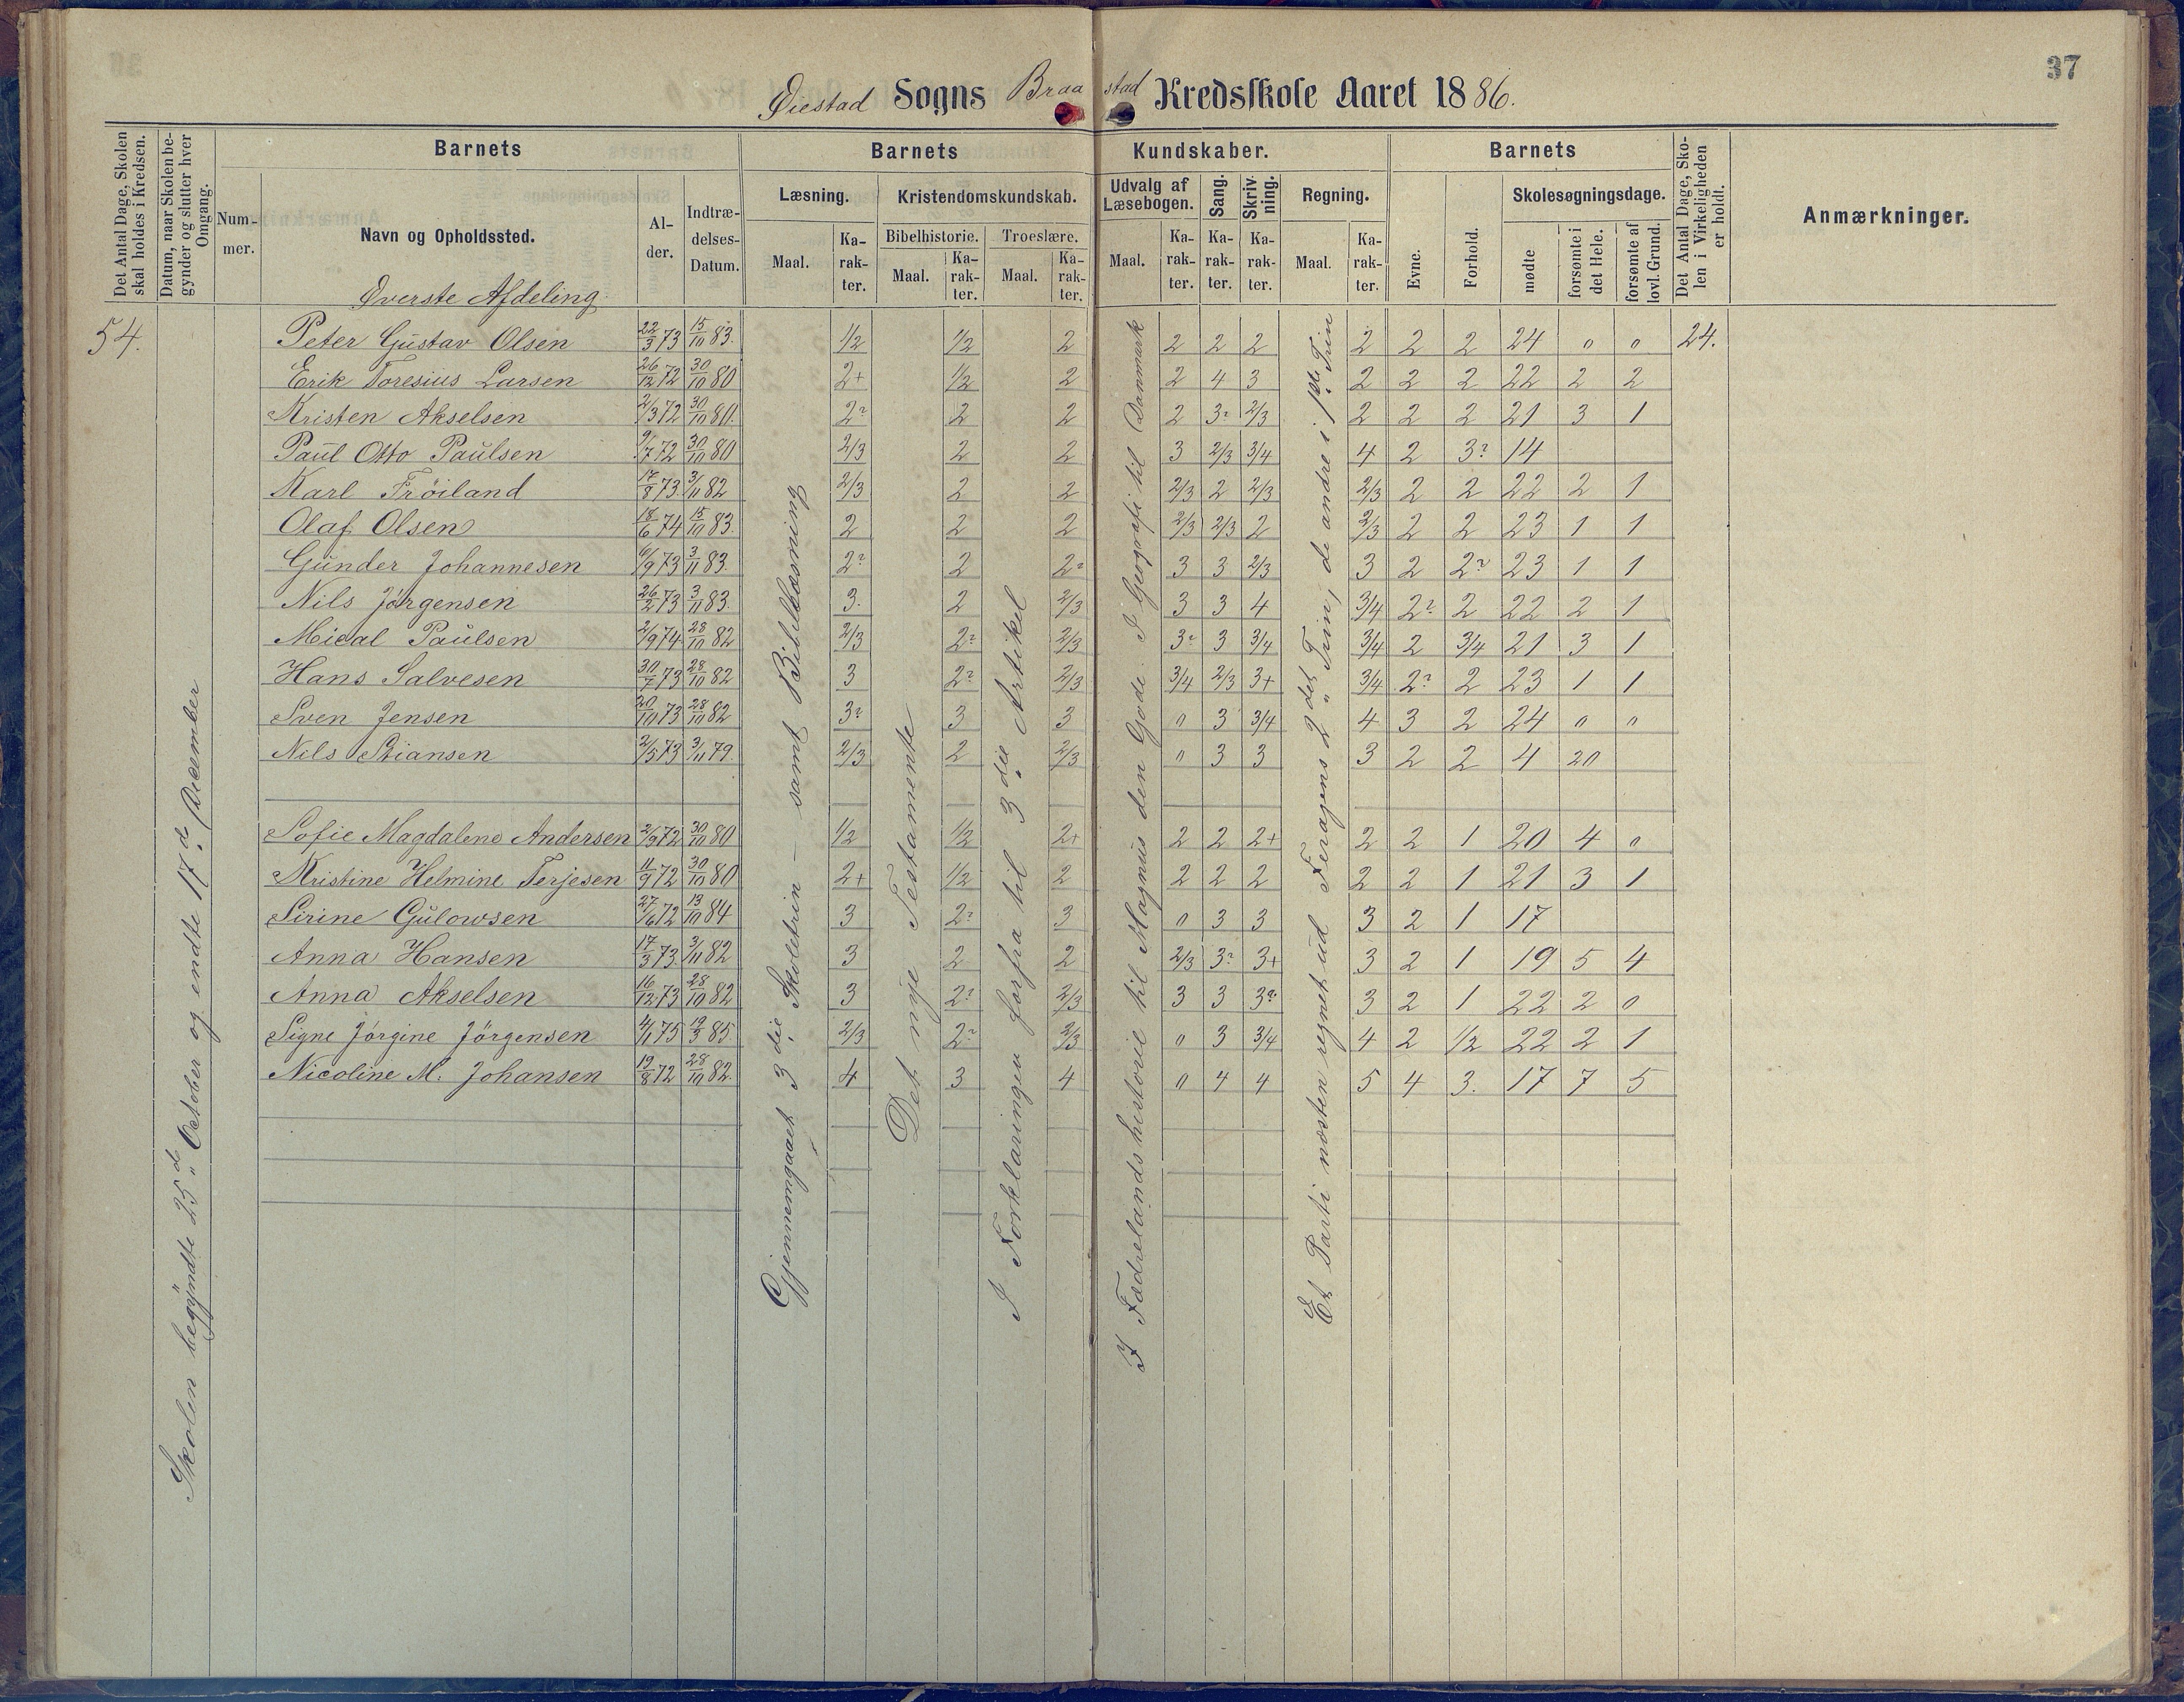 37
Øiestad Sogns Braastad Kredsskole Aaret 1886.
Det Antal Dage, Skolen skal holdes i Kredsen.
Datum, naar Skolen begynder og slutter hver Omgang.
Barnets
Nummer.
Navn og Opholdssted.
Alder.
Indtrædelses-Datum.
Barnets Kundskaber.
Læsning.
Maal.
Karakter.
Kristendomskundskab.
Bibelhistorie.
Maal.
Karakter.
Troeslære.
Maal.
Karakter.
Udvalg af Læsebogen.
Maal.
Karakter.
Sang.
Karakter.
Skrivning.
Karakter.
Regning.
Maal.
Karakter.
Barnets
Evne.
Forhold.
Skolesøgningsdage.
mødte
forsømte i det Hele.
forsømte af lovl. Grund.
Det Antal Dage, Skolen i Virkeligheden er holdt.
Anmærkninger.
Øverste Afdeling.
54. Peter Gustav Olsen 22/3 73 15/10 83. 1/2 1/2 2 2 2 2 2 2 2 24 " " 24.
Erik Toresius Larsen 26/12 72 30/10 80 2+ 1/2 2 2 4 3 2 2 2 22 2 2
Kristen Akselsen 2/3 72 30/10 80. 2? 2 2 2 3? 2/3 2 2 2 21 3 1
Paul Otto Paulsen 9/7 72 30/10 80 2/3 2 2 3 2/3 3/4 4 2 3? 14
Karl Frøiland 17/8 73 3/11 82 2/3 2 2 2/3 2 2/3 2/3 2 2 22 2 1
Olaf Olsen 18/6 74 15/10 83. 2 2 2 2/3 2/3 2 2/3 2 2 23 1 1
Gunder Johannesen 6/9 73 3/11 83. 2? 2 2? 3 3 2/3 3 2 2? 23 1 1
Nils Jørgensen 26/2 73 3/11 83. 3. 2 2/3 3 3 4 3/4 2? 2 22 2 1
Mical Paulsen 2/9 74 28/10 82 2/3 2? 2/3 3? 3 3/4 3/4 2 3/4 21 3 1
Hans Salvesen 30/7 73 28/10 82 3 2? 2/3 3/4 2/3 3+ 3/4 2? 2 23 1 1
Sven Jensen 20/10 73 28/10 82 3? 3 3 " 3 3/4 4 3 2 24 " "
Nils Stiansen 2/5 73 3/11 79. 2/3 2 2/3 " 3 3 3 2 2 4 20
Sofie Magdalene Andersen 2/9 72 30/10 80 1/2 1/2 2+ 2 2 2+ 2 2 1 20 4 "
Kristine Helmine Terjesen 11/9 72 30/10 80 2+ 1/2 2 2 2 2 2 2 1 21 3 1
Sirine Gulowsen 27/6 72 13/10 84 3 2? 3 " 3 3 3 2 1 17
Anna Hansen 17/3 73 3/11 82 3 2 2 2/3 3? 3+ 3 2 1 19 5 4
Anna Akselsen 16/12 73 28/10 82 3 2? 2/3 3 3 3? 3 2 1 22 2 0
Signe Jørgine Jørgensen 4/1 75 19/3 85. 2/3 2? 2/3 " 3 3/4 4 2 1/2 22 2 1
Nicoline M. Johansen 19/8 72 28/10 82. 4 3 4 " 4 4 5 4 3. 17 7 5
Skolen begyndte 25d October og endte 17d December
Gjennemgaaet 3die Skoletrin – samt Bibellæsning
Det nye Testamente
I Forklaringen forfra til 3die Artikel
I Fædrelandshistorie til Magnus den Gode. I Geografi til Danmark
Et Parti næsten regnet ud Feragens 2det Trin, de andre i 1ste Trin